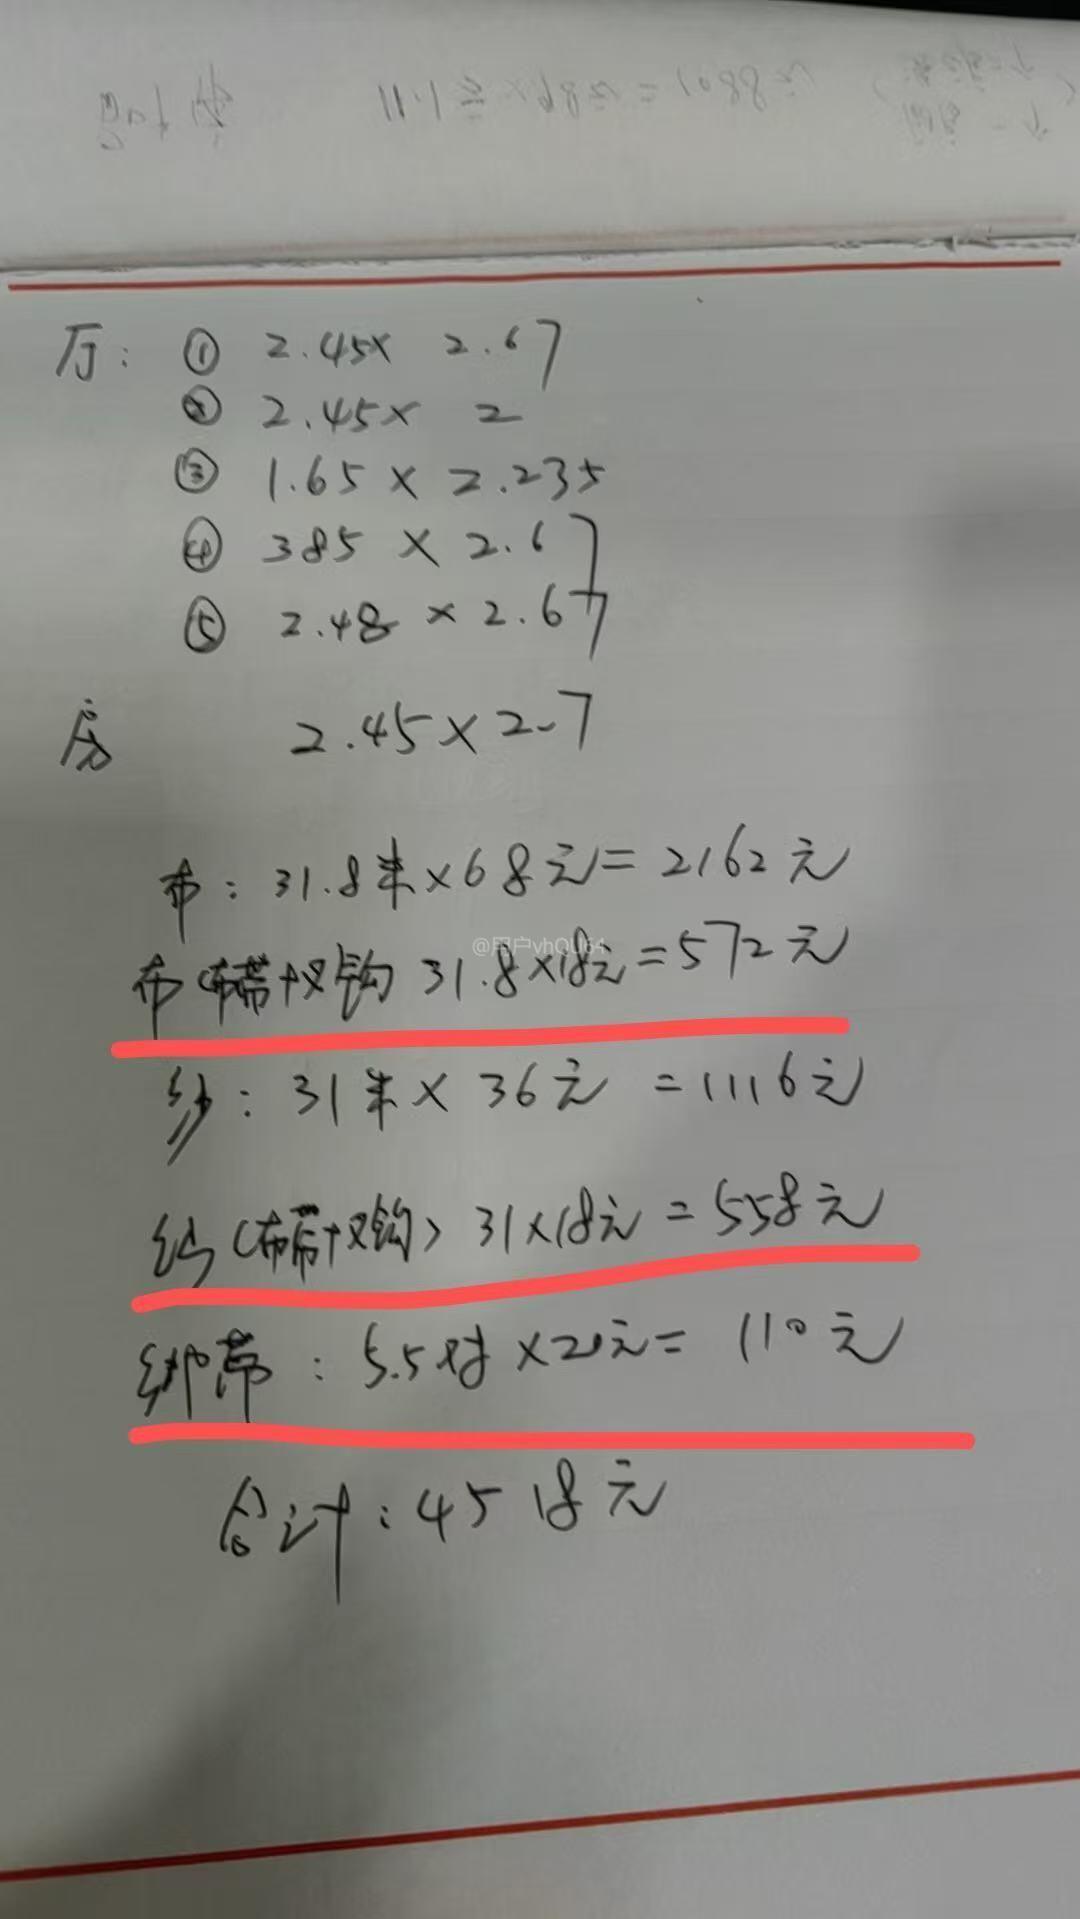 厅: ① 2.45× 2.67
② 2.45× 2
③ 1.65 × 2.235
④ 385 × 2.67
⑤ 2.48 × 2.67
房 2.45×2.7
布: 31.8米×68元=2162元
@用户vhQU64
布(布带+叉钩 31.8×18元=572元
纱: 31米× 36元 =1116元
纱(布带+叉钩) 31×18元=558元
绑带: 5.5对×20元= 110元
合计: 4518元